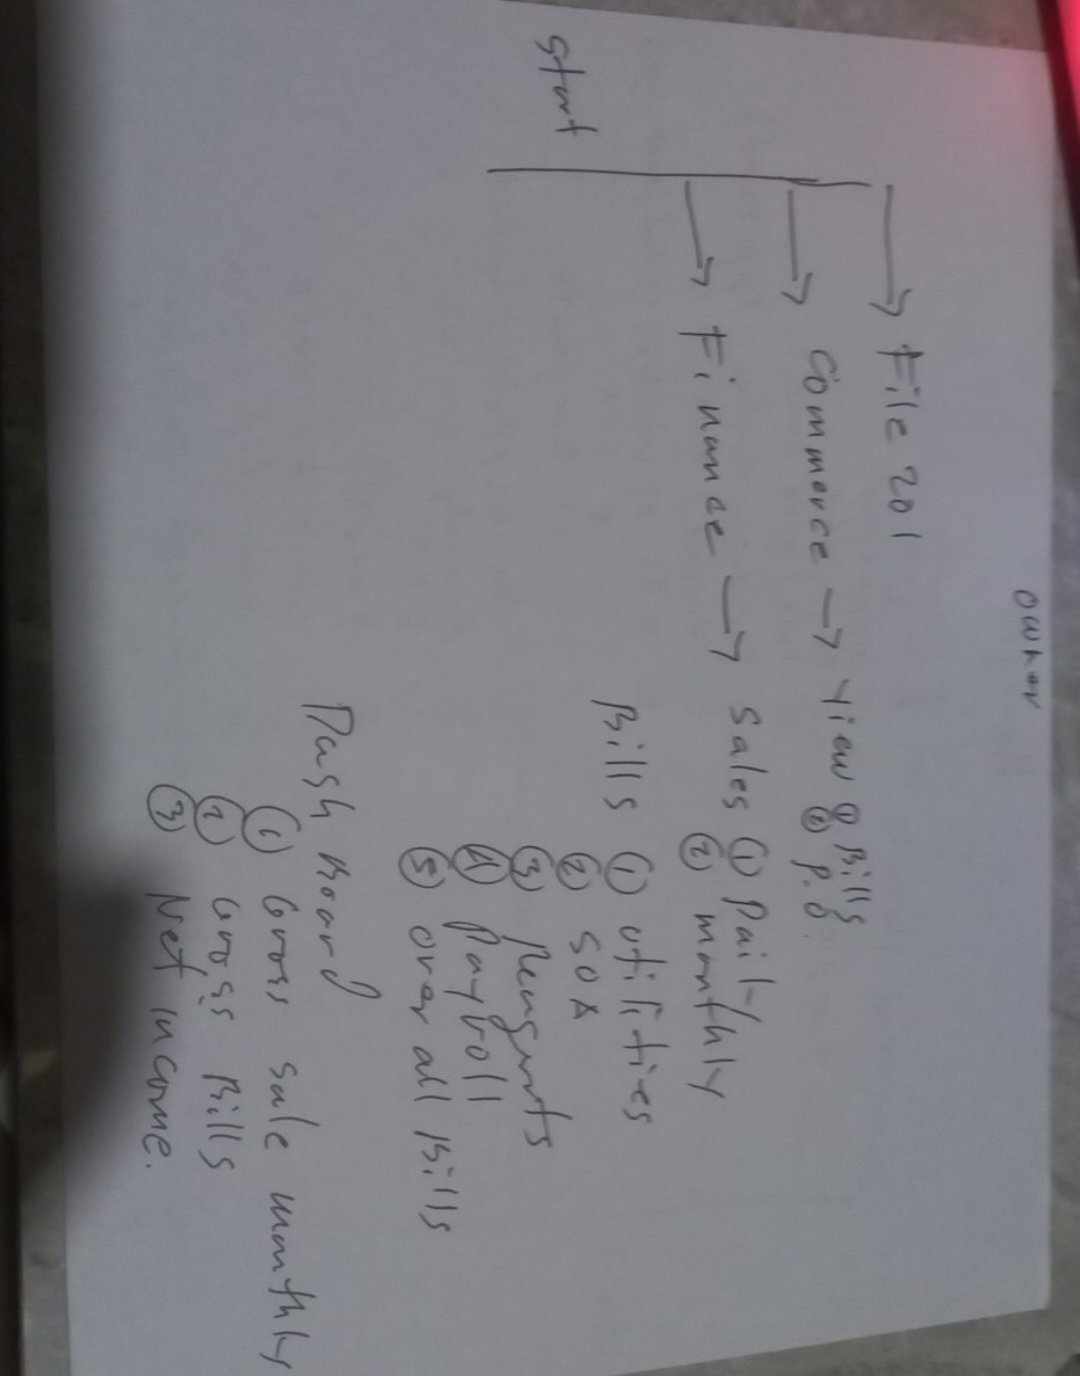 owner
File 201
Commerce → view ① Bills
② P.O.
Finance → Sales ① Daily
② monthly
Bills ① utilities
② SOA
③ Reagents
④ Payroll
⑤ over all Bills
start
Dash Board
① Gross sale monthly
② Gross Bills
③ Net income.